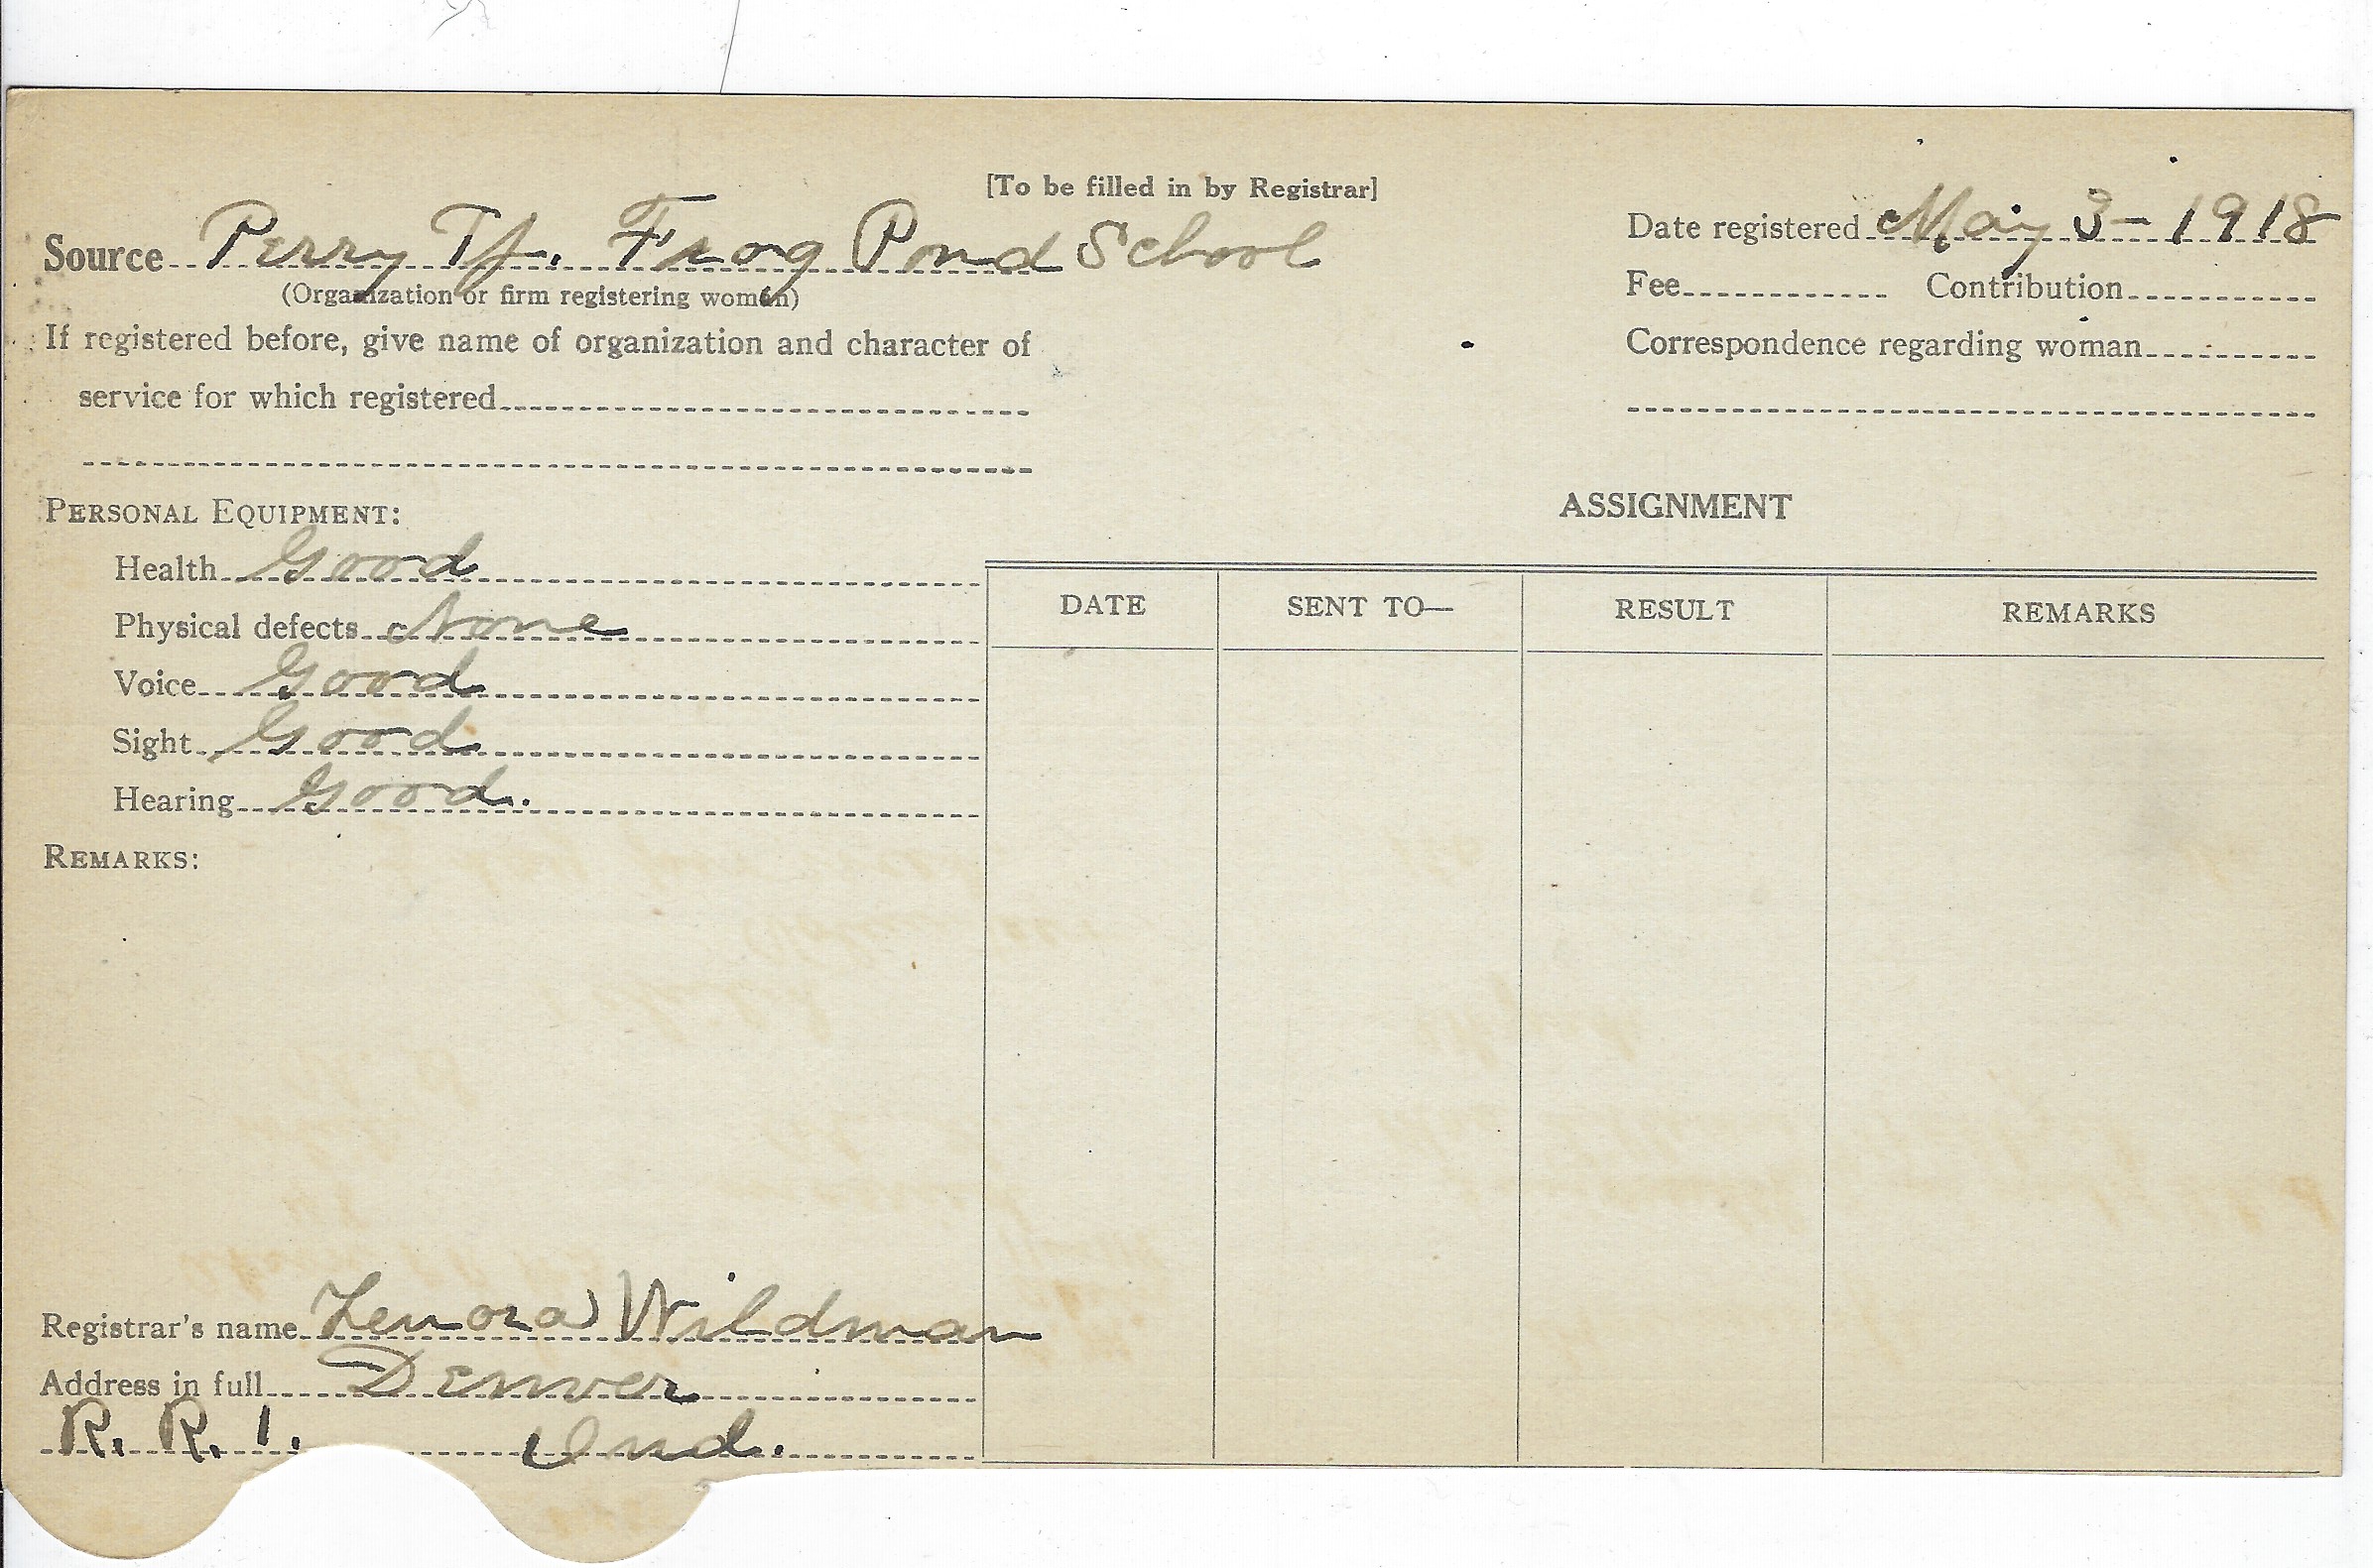 [To be filled in by Registrar]
Source Perry Tp. Frog Pond School
(Organization or firm registering woman)
Date registered May 3-1918
Fee Contribution
If registered before, give name of organization and character of
service for which registered
Correspondence regarding woman
PERSONAL EQUIPMENT:
Health Good
Physical defects None
Voice Good
Sight Good
Hearing Good.
REMARKS:
ASSIGNMENT
DATE SENT TO— RESULT REMARKS
Registrar's name Lenora Wildman
Address in full Denver
R. R. 1. Ind.